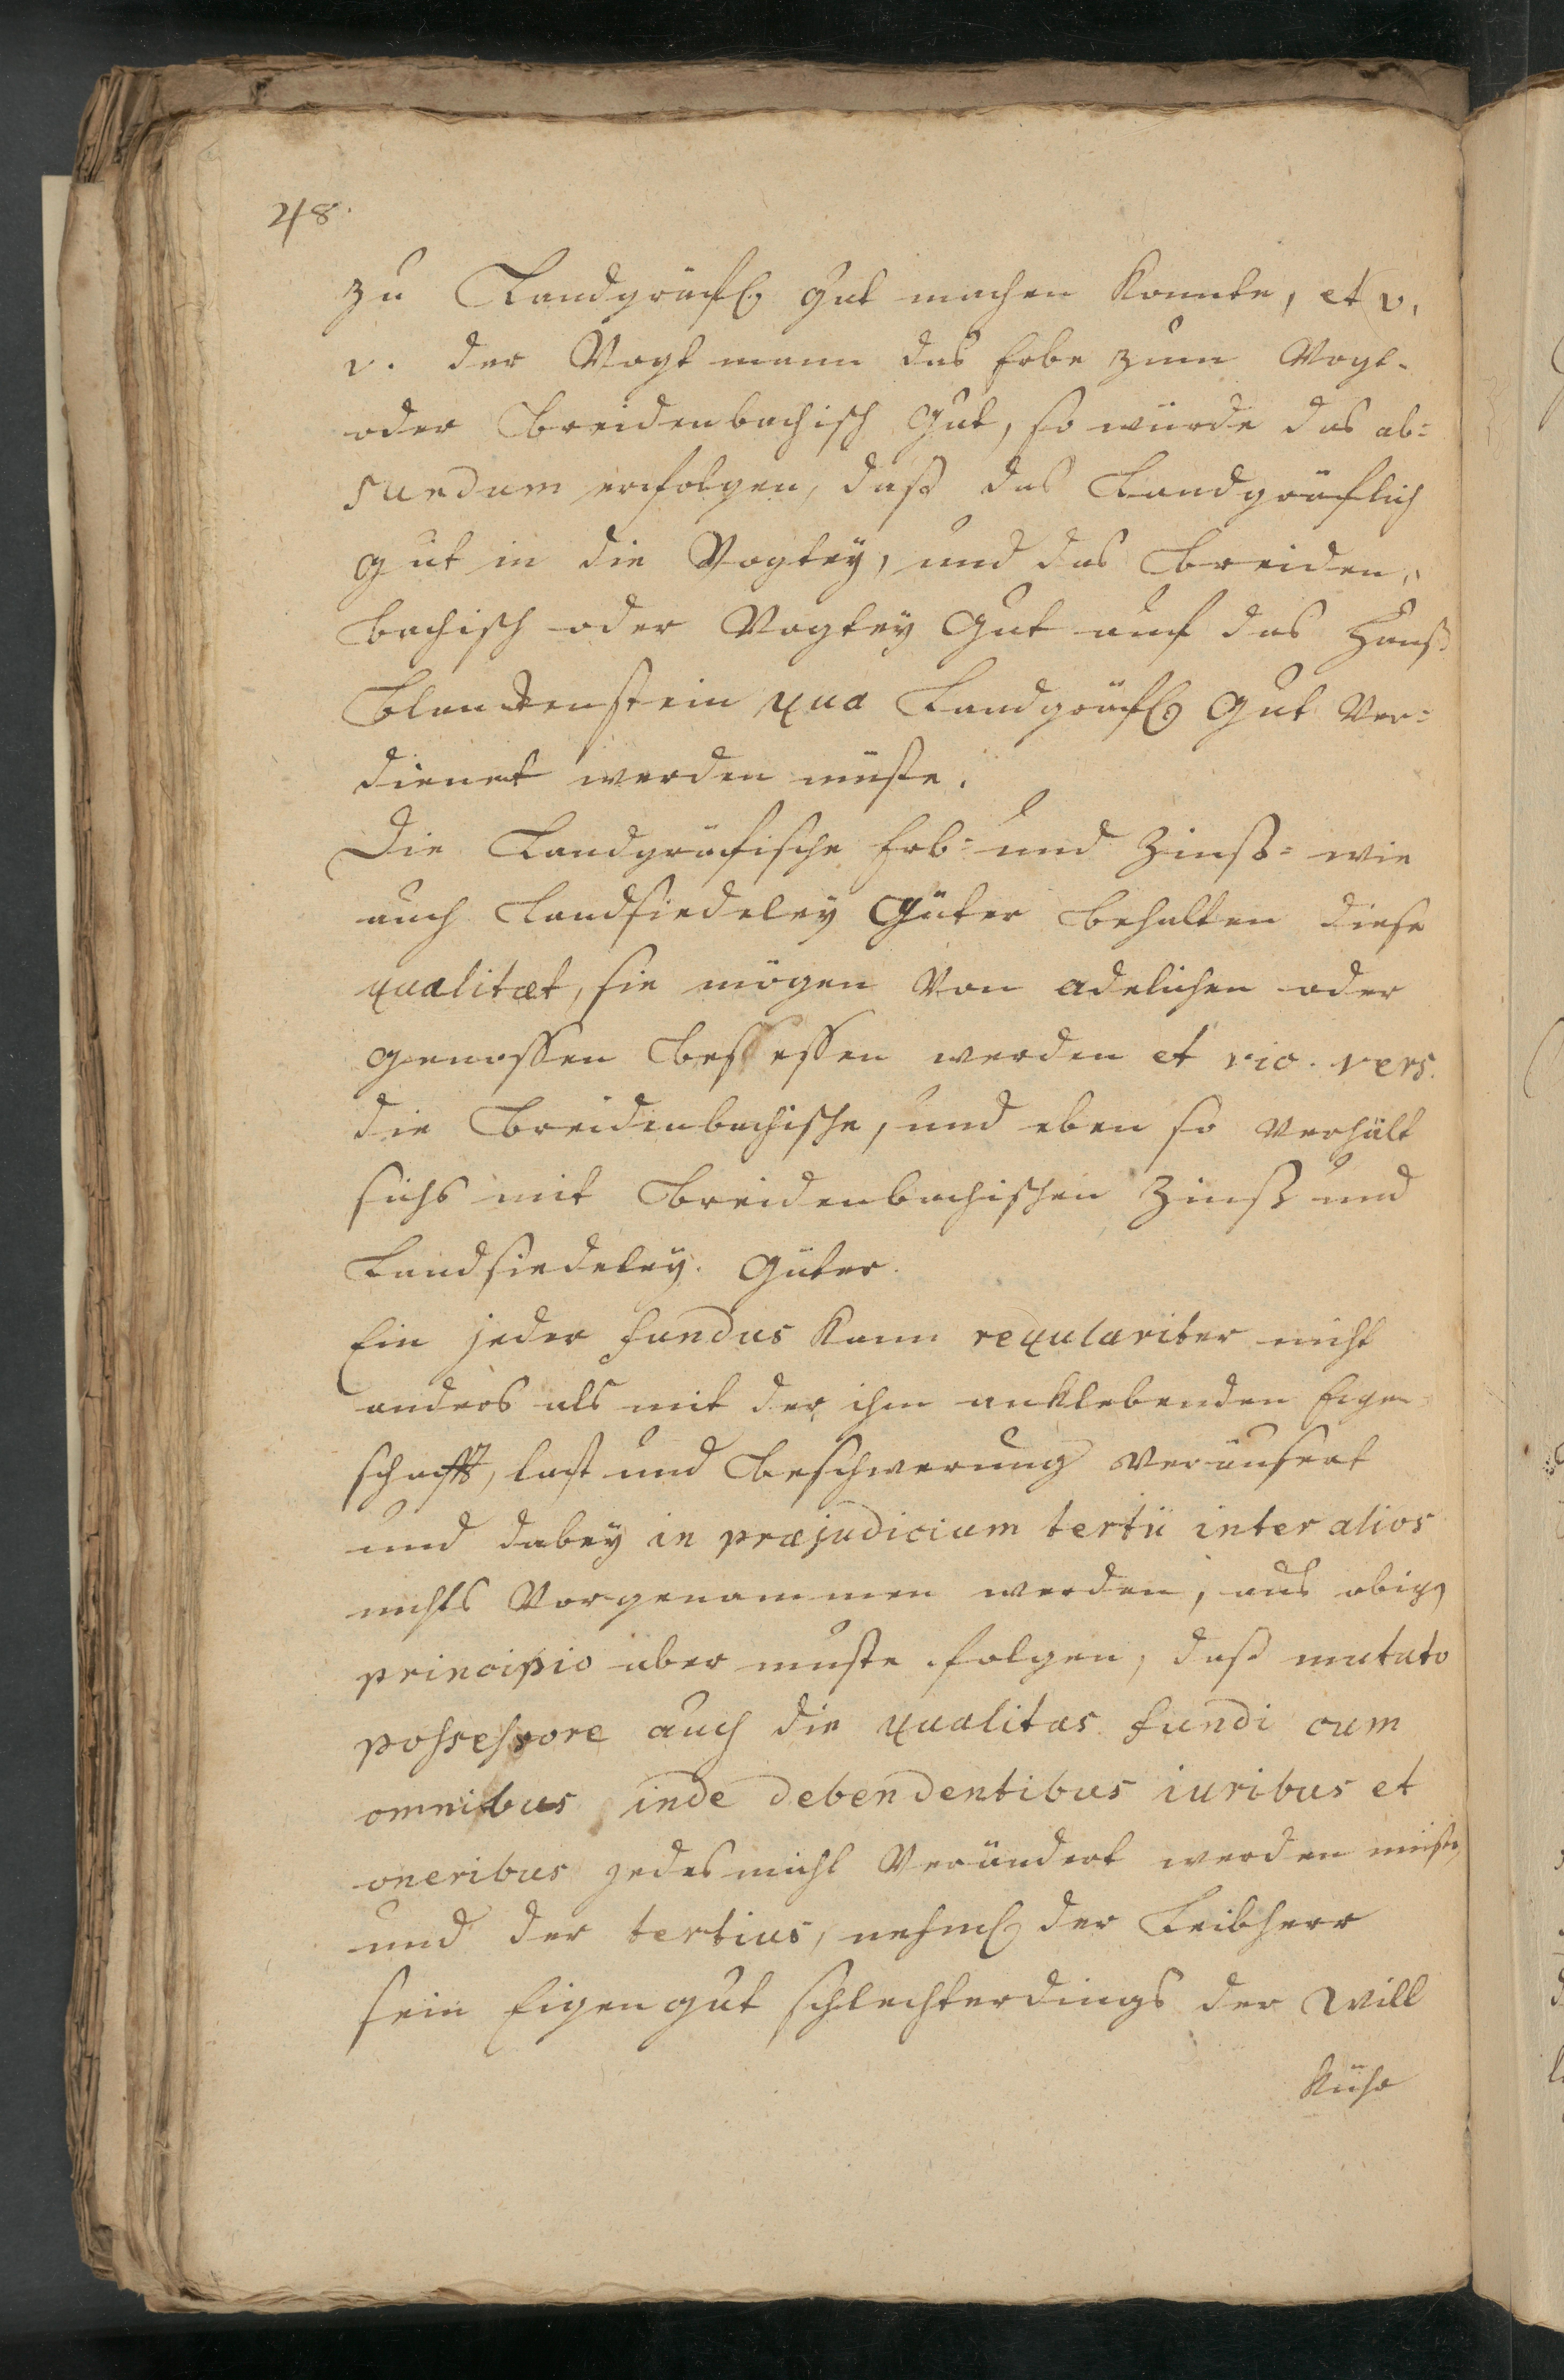 48.
zu Landgräfl. gut machen konnte, et v.
v. der Vogtmann das Erbe zum Vogt-
oder Breidenbachisch Gut, so würde das ab=
surdum erfolgen, daß das Landgräflich
gut in die Vogtey, und das Breiden„
bachisch oder Vogtey Gut auf das Hauß
Blanckenstein qua Landgräfl. Gut Ver=
dienet werden müste.
Die Landgräfische Erb= und Zinß= wie
auch Landsiedeley Güter behalten diese
qualitæt, sie mögen Von adelichen oder
genossen besessen werden et vic. vers.
die Breidenbachische, und eben so verhält
sichs mit Breidenbachischen Zinß und
Landsiedeley. Güter.
Ein jeder fundus kann regulariter nicht
anders als mit der ihm anklebenden Eigen
schafft, last und Beschwerung veräusert
und dabey in præjudicium tertii inter alios
nichts Vorgenammen werden, aus obigen
principio aber muste folgen, daß mutato
possessore auch die qualitas fundi cum
omnibus inde debendentibus iuribus et
oneribus jedesmahl Verändert werden müste,
und der tertius, nehml. der Leibherr
sein Eigengut schlechterdings der Will
kühr